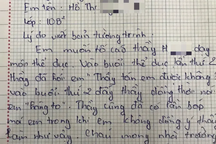 Em tên: Hồ Thị
Lớp: 10B
Lý do viết bản tường trình:
Em muốn tố cáo thầy H dạy
môn thể dục. Vào buổi thể dục lần thứ 2
thầy đã hỏi em "Thầy tán em được không"
vào buổi thứ 2 dạy thầy đồng thời nói
em "Rang to". Thầy cũng đã có lần bóp
mà em trong khi em không đồng ý thầy
làm như vậy